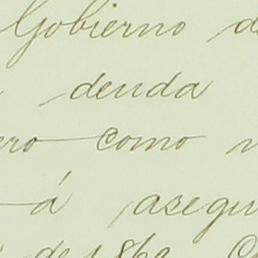 Gobierno d
deuda
ero como n
á asegur
de 186